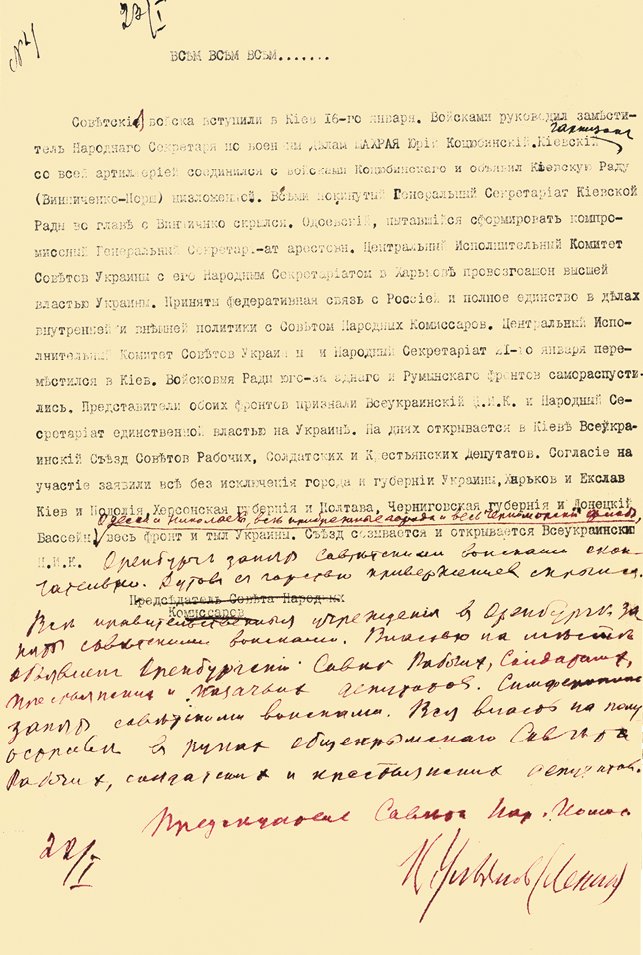 22/I
№ 4
ВСѢМ ВСѢМ ВСѢМ.......
Совѣтскія войска вступили в Кіев 16-го января. Войсками руководил замѣсти-
гарнизон
тель Народнаго Секретаря по военным дѣлам ШАХРАЯ Юрій Коцюбинскій.Кіевскій
со всей артиллеріей соединился с войсками Коцюбинскаго и об'явил Кіевскую Раду
(Винниченко-Порш) низложенной. Всѣми покинутый Генеральный Секретаріат Кіевской
Рады во главѣ с Винниченко скрылся. Одоевскій, пытавшійся сформировать компро-
миссный Генеральный Секретаріат арестован. Центральный Исполнительный Комитет
Совѣтов Украины с его Народным Секретаріатом в Харьковѣ провозглашен высшей
властью Украины. Приняты федеративная связь с Россіей и полное единство в дѣлах
внутренней и внѣшней политики с Совѣтом Народных Комиссаров. Центральный Испо-
лнительный Комитет Совѣтов Украины и Народный Секретаріат 21-го января пере-
мѣстился в Кіев. Войсковыя Рады юго-западнаго и Румынскаго фронтов самораспусти-
лись. Представители обоих фронтов признали Всеукраинскій Ц.И.К. и Народный Се-
кретаріат единственной властью на Украинѣ. На днях открывается в Кіевѣ Всеукра-
инскій Съѣзд Совѣтов Рабочих, Солдатских и Крестьянских Депутатов. Согласіе на
участіе заявили всѣ без исключенія города и губерніи Украины, Харьков и Екслав
Кіев и Подолія, Херсонская губернія и Полтава, Черниговская губернія и Донецкій
Одесса и Николаев, всѣ прибрежные города и весь Черноморскій флот,
Бассейн, весь фронт и тыл Украины. Съѣзд созывается и открывается Всеукраинским
Ц.И.К. Оренбург занят совѣтскими войсками окон-
чательно. Дутов с горстью приверженцев скрылся.
Предсѣдатель Совѣта Народных
Комиссаров
Всѣ правительственныя учрежденія в Оренбургѣ за-
няты совѣтскими войсками. Властью на мѣстѣ
объявлен Оренбургскій Совѣт Рабочих, Солдатских,
Крестьянских и Казачьих депутатов. Симферополь
занят совѣтскими войсками. Вся власть на полу-
островѣ в руках общекрымскаго Совѣта
Рабочих, солдатских и крестьянских депутатов.
Предсѣдатель Совѣта Нар. Комис.
22/I
В Ульянов (Ленин)